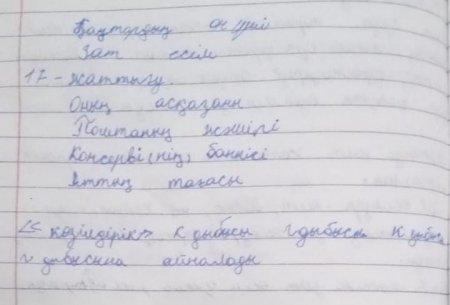 Зат есім
17-жаттығу
Оның асқазаны
Поштаның жәшігі
Консерві(нің) банкісі
Аттың тағасы
<<көзілдірік>> К дыбысы г дыбысы К дыбысы
г дыбысына айналады